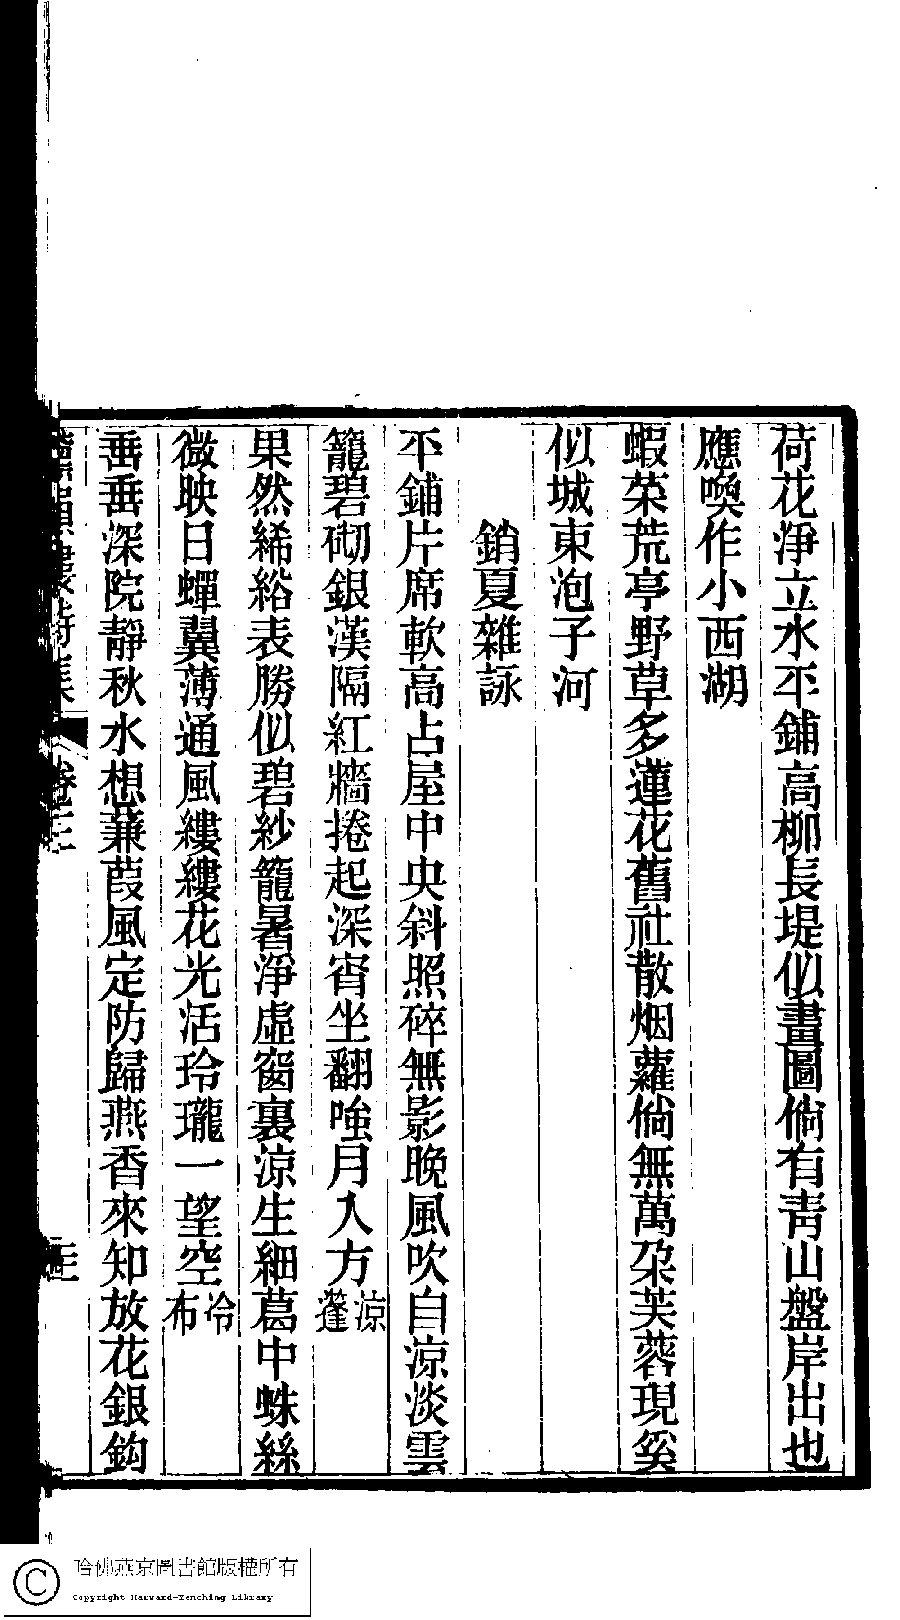 荷花淨立水平鋪高柳長堤似畫圖倘有青山盤岸出也
應喚作小西湖
蝦菜荒亭野草多蓮花舊社散烟蘿倘無萬朶芙蓉現奚
似城東泡子河
銷夏雜詠
平鋪片席軟高占屋中央斜照碎無影晚風吹自涼淡雲
籠碧砌銀漢隔紅牆捲起深宵坐翻嗤月入方涼篷
果然絺綌表勝似碧紗籠暑淨虛窗裏涼生細葛中蛛絲
微映日蟬翼薄通風縷縷花光活玲瓏一望空冷布
垂垂深院靜秋水想蒹葭風定防歸燕香來知放花銀鈎
卷三
哈佛燕京圖書館版權所有
Copyright Harvard-Yenching Library